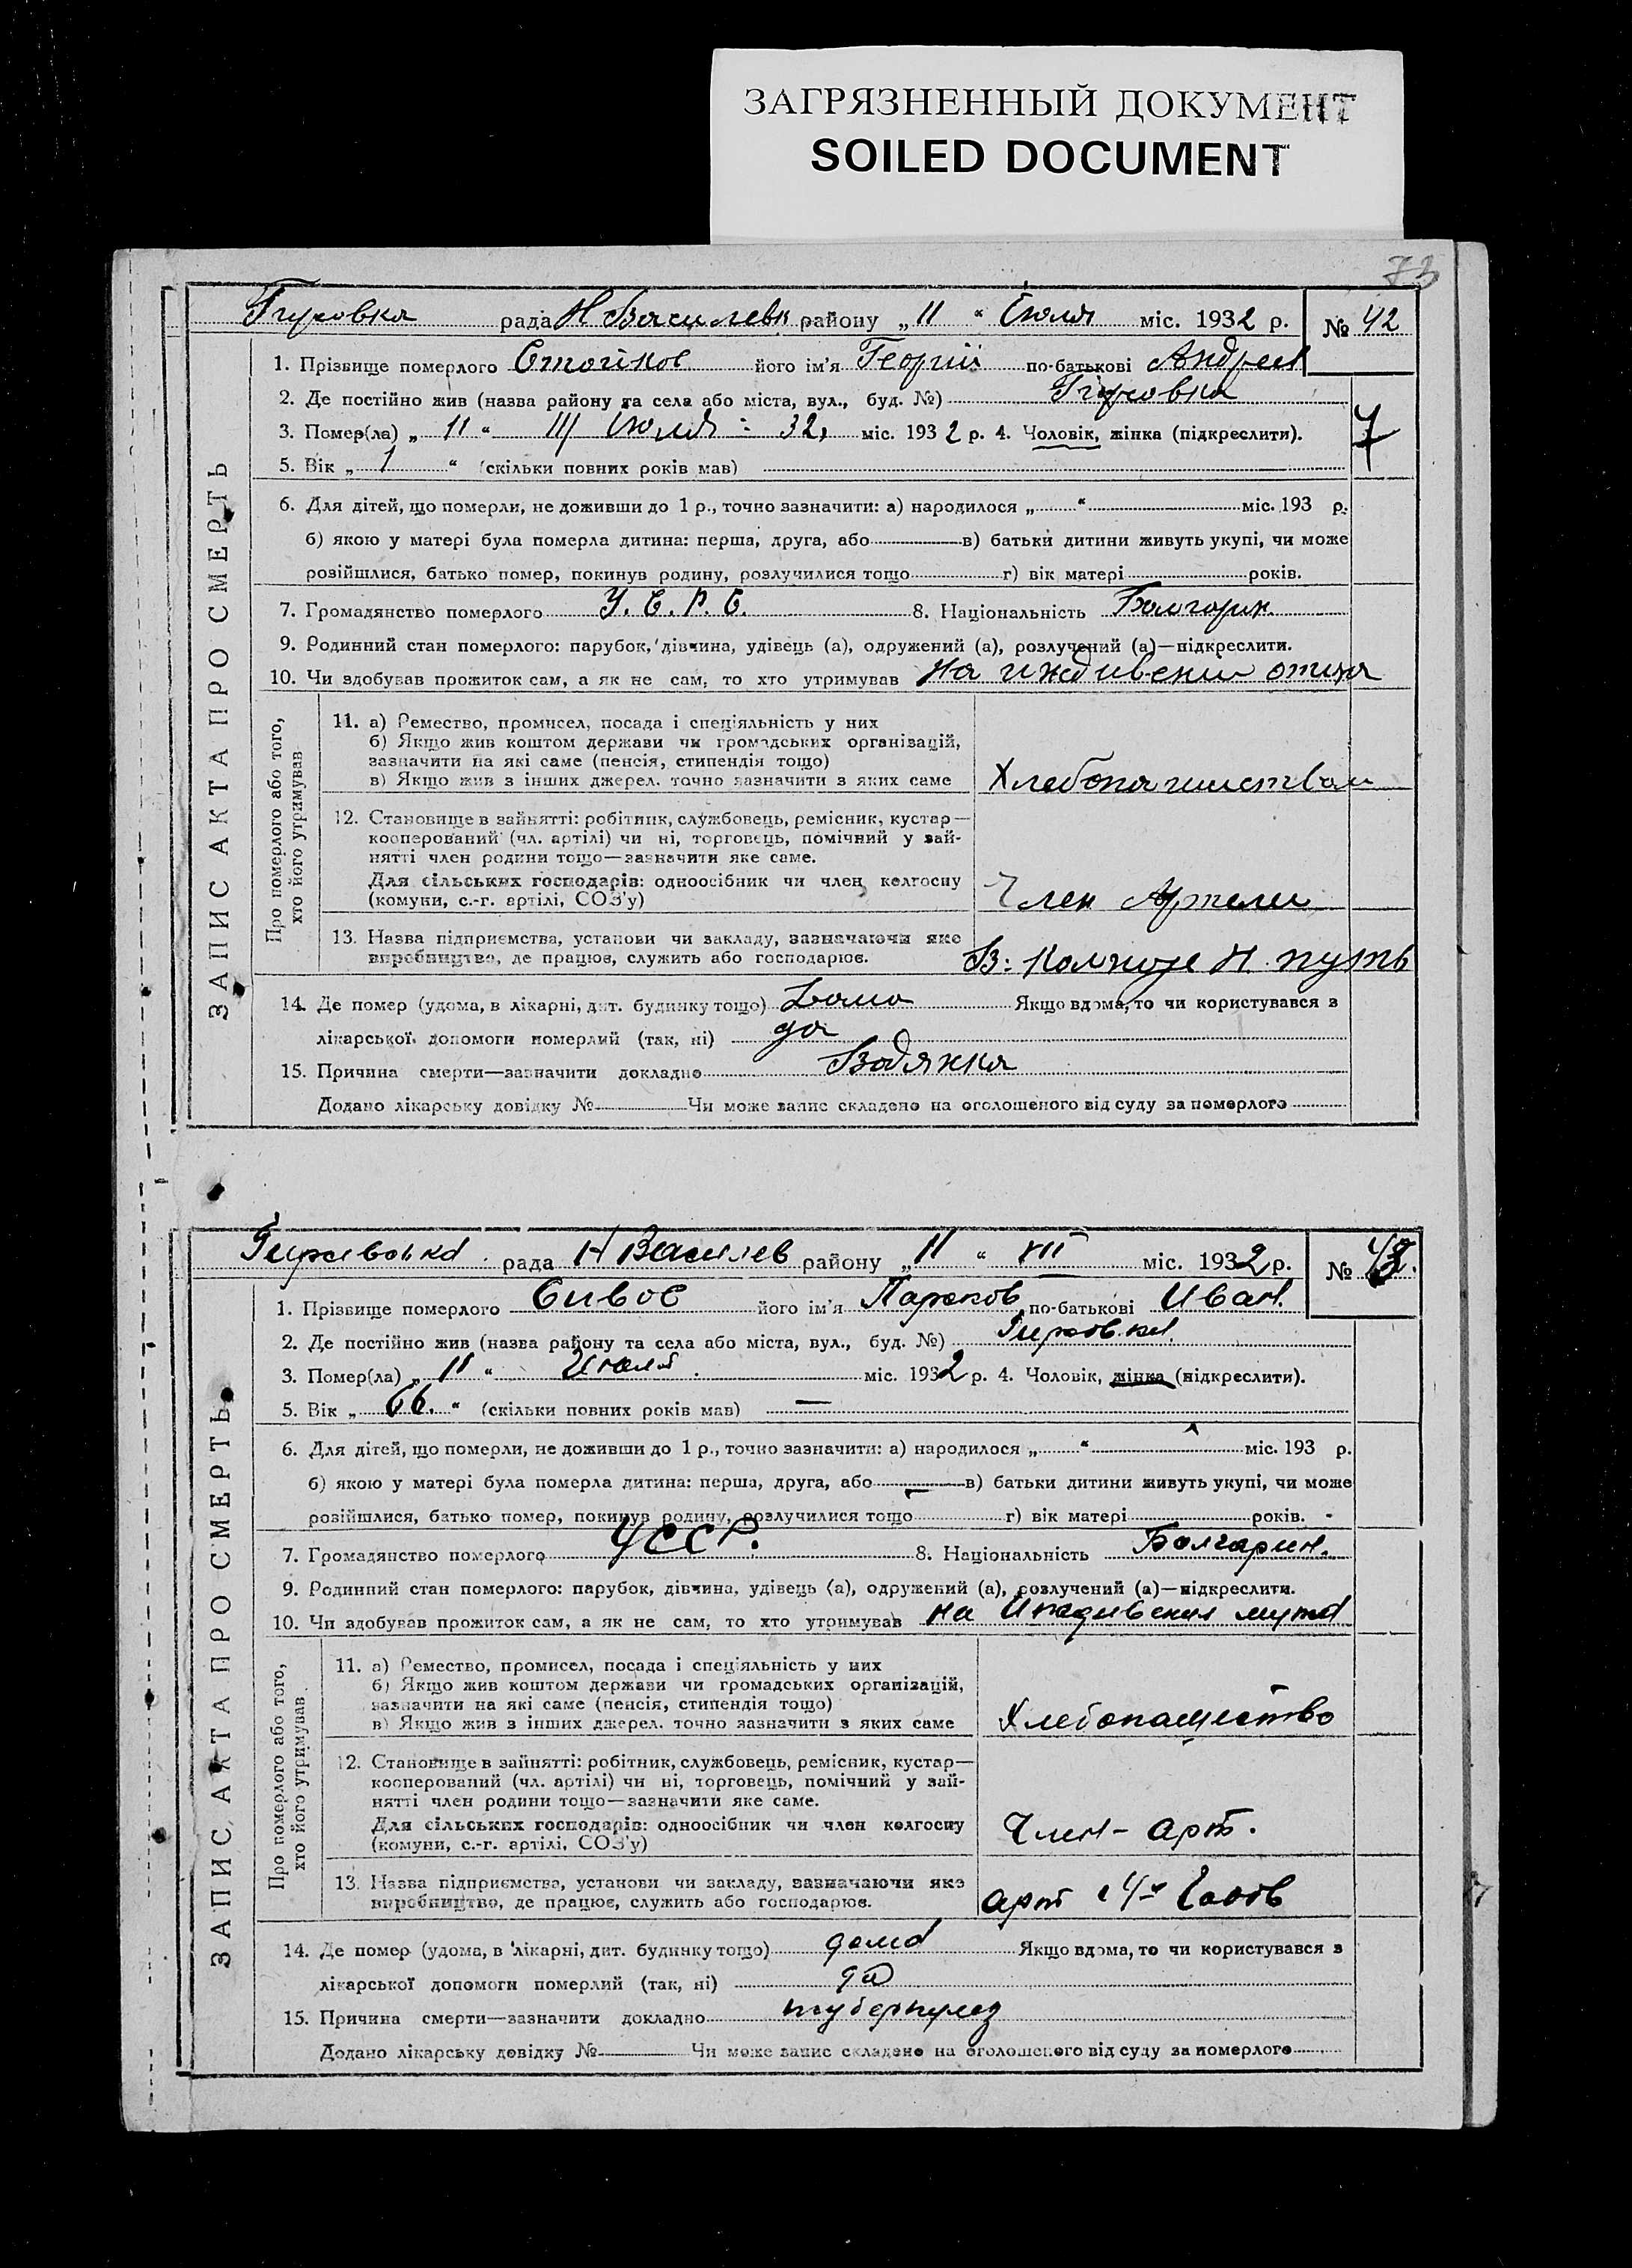 ЗАГРЯЗНЕННЫЙ ДОКУМЕНТ
SOILED DOCUMENT
73
Гировка рада Н Василевк району „ 11 “ Июля міс. 1932 р. № 42
1. Прізвище померлого Стойков його ім'я Георгий по-батькові Андрея
2. Де постійно жив (назва району та села або міста, вул., буд. №) Гировка
3. Помер(ла) „ 11 “ Июля 32, міс. 1932 р. 4. Чоловік, жінка (підкреслити).
7
5. Вік „ 1 “ (скільки повних років мав)
6. Для дітей, що померли, не доживши до 1 р., точно зазначити: а) народилося „ “ міс. 193 р.
б) якою у матері була померла дитина: перша, друга, або в) батьки дитини живуть укупі, чи може
розійшлися, батько помер, покинув родину, розлучилися тощо г) вік матері років.
7. Громадянство померлого У. С. Р. С. 8. Національність Болгарин
9. Родинний стан померлого: парубок, дівчина, удівець (а), одружений (а), розлучений (а)—підкреслити.
10. Чи здобував прожиток сам, а як не сам, то хто утримував На иждивении отца
ЗАПИС АКТА ПРО СМЕРТЬ
Про померлого або того, хто його утримував
11. а) Ремество, промисел, посада і спеціяльність у них
б) Якщо жив коштом держави чи громадських організацій,
зазначити на які саме (пенсія, стипендія тощо)
в) Якщо жив з інших джерел, точно зазначити з яких саме Хлебопашеством
12. Становище в зайнятті: робітник, службовець, ремісник, кустар—
кооперований (чл. артілі) чи ні, торговець, помічний у зай-
нятті член родини тощо—зазначити яке саме.
Для сільських господарів: одноосібник чи член колгоспу
(комуни, с.-г. артілі, СОЗ'у) Член Артели
13. Назва підприємства, установи чи закладу, зазначаючи яке
виробництво, де працює, служить або господарює. В: Колхозе Н. путь
14. Де помер (удома, в лікарні, дит. будинку тощо) Дома Якщо вдома, то чи користувався з
лікарської допомоги померлий (так, ні) да
15. Причина смерти—зазначити докладно Водянка
Додано лікарську довідку № Чи може запис складено на оголошеного від суду за померлого
рада Н Василев району „ 11 “ VII міс. 1932 р. № 43.
1. Прізвище померлого Сивос його ім'я по-батькові Иван.
2. Де постійно жив (назва району та села або міста, вул., буд. №) Гировка
3. Помер(ла) „ 11 “ Июля міс. 1932 р. 4. Чоловік, жінка (підкреслити).
5. Вік „ 66. “ (скільки повних років мав) —
6. Для дітей, що померли, не доживши до 1 р., точно зазначити: а) народилося „ “ міс. 193 р.
б) якою у матері була померла дитина: перша, друга, або в) батьки дитини живуть укупі, чи може
розійшлися, батько помер, покинув родину, розлучилися тощо г) вік матері років.
7. Громадянство померлого УССР. 8. Національність Болгарин.
9. Родинний стан померлого: парубок, дівчина, удівець (а), одружений (а), розлучений (а)—підкреслити.
10. Чи здобував прожиток сам, а як не сам, то хто утримував на Иждивения мужа
ЗАПИС АКТА ПРО СМЕРТЬ
Про померлого або того, хто його утримував
11. а) Ремество, промисел, посада і спеціяльність у них
б) Якщо жив коштом держави чи громадських організацій,
зазначити на які саме (пенсія, стипендія тощо)
в) Якщо жив з інших джерел, точно зазначити з яких саме Хлебопашество
12. Становище в зайнятті: робітник, службовець, ремісник, кустар—
кооперований (чл. артілі) чи ні, торговець, помічний у зай-
нятті член родини тощо—зазначити яке саме.
Для сільських господарів: одноосібник чи член колгоспу
(комуни, с.-г. артілі, СОЗ'у) Член- арт.
13. Назва підприємства, установи чи закладу, зазначаючи яке
виробництво, де працює, служить або господарює. арт
14. Де помер (удома, в лікарні, дит. будинку тощо) дома Якщо вдома, то чи користувався з
лікарської допомоги померлий (так, ні) да
15. Причина смерти—зазначити докладно туберкулез
Додано лікарську довідку № Чи може запис складено на оголошеного від суду за померлого